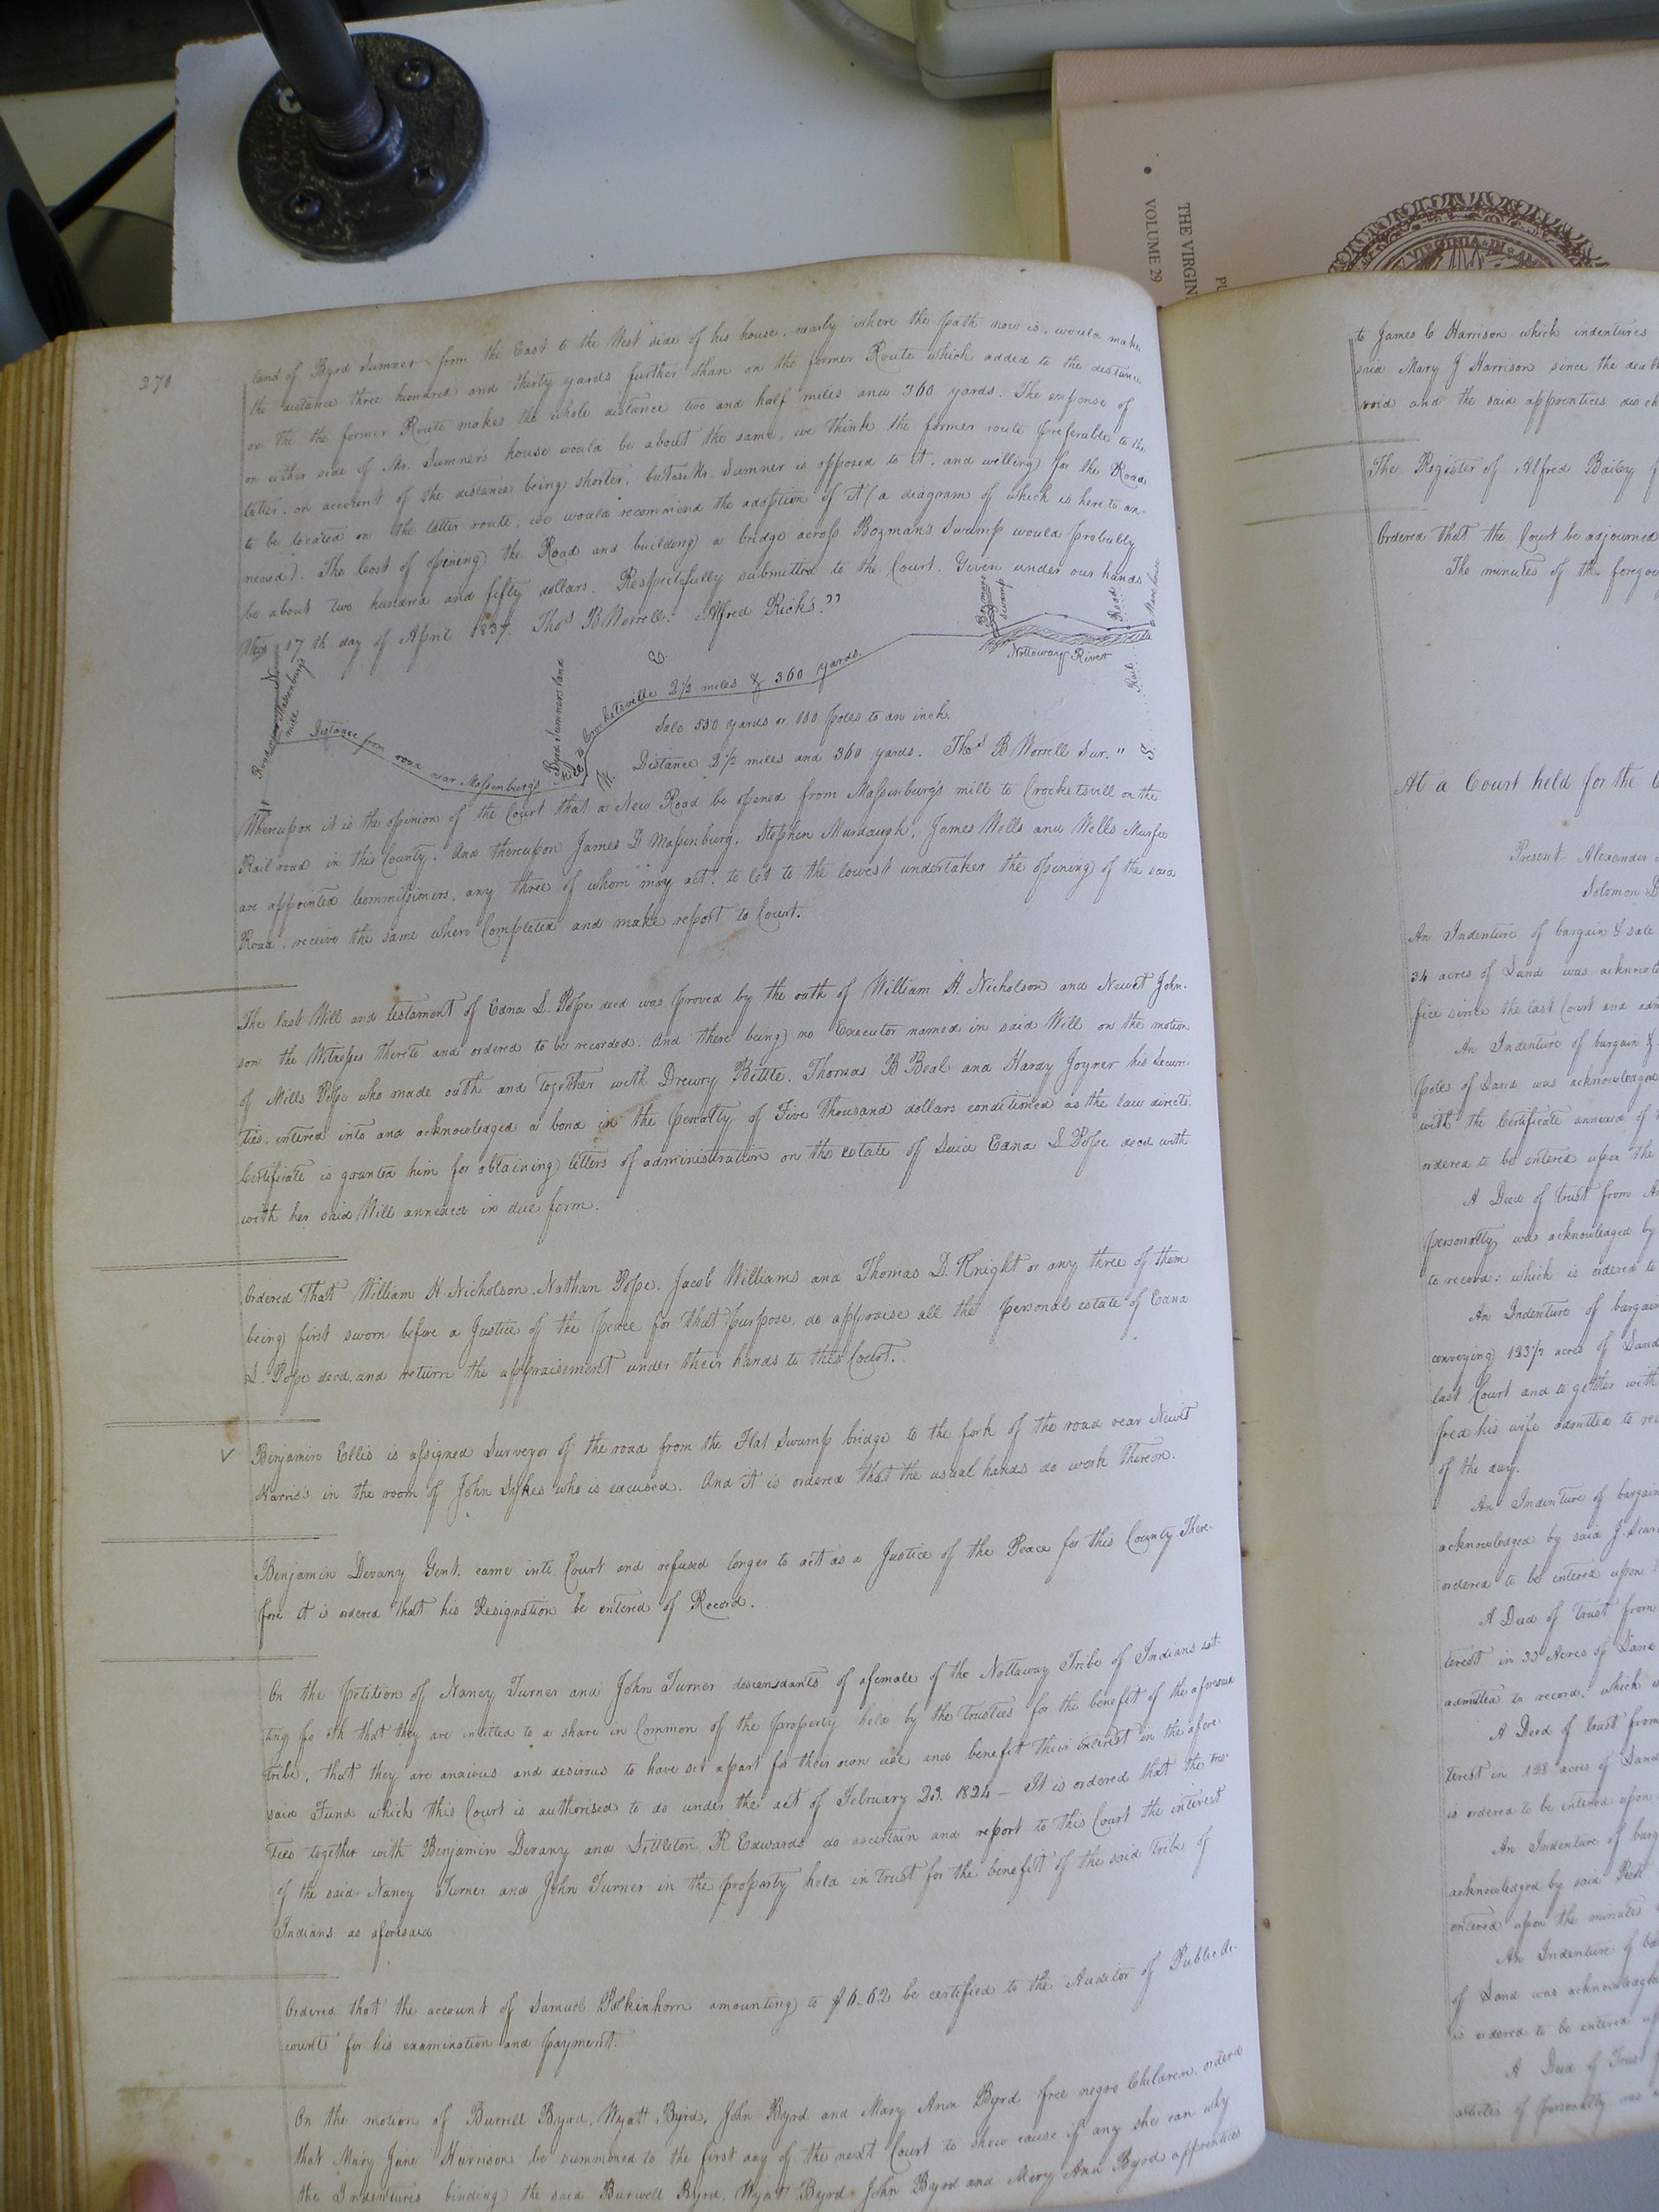 THE VIRGIN
VOLUME 29
VIRGINIA IN
270
land of Byrd Sumner from the East to the West side of his house, nearly where the path now is, would make
the distance three hundred and thirty yards further than on the former Route which added to the distance
on the the former Route makes the whole distance two and half miles and 360 yards. The expense of
on either side of Mr. Sumner's house would be about the same, we think the former route preferable to the
latter, on account of the distance being shorter, but as Mr. Sumner is opposed to it, and willing for the Road
to be located on the latter route, we would recommend the adoption of it (a diagram of which is here to an-
nexed). The Cost of opening the Road and building a bridge across Bozman's Swamp would probably
be about two hundred and fifty dollars. Respectfully submitted to the Court. Given under our hands
this 17th day of April 1837. Thos B Worrell. Alfred Ricks."
Road near Massenburg's mill
Distance from road near Massenburg's Mill to Crocketsville 2 1/2 miles & 360 yards.
Byrd Sumners land
E.
N.
Swamp
Nottoway River
Rail Road
S
Sale 550 yards or 100 poles to an inch.
Distance 2 1/2 miles and 360 yards. Thos B Worrell Sur."
Whereupon it is the opinion of the Court that a New Road be opened from Massenburg's mill to Crocketsvill on the
Rail road in this County. And thereupon James D Massenburg, Stephen Murdaugh, James Wells and Wells Murfee
are appointed Commissioners, any three of whom may act, to let to the lowest undertaker the opening of the said
Road, receive the same when Completed and make report to Court.
The last Will and testament of Edna S. Pope decd was proved by the oath of William H. Nicholson and Newit John-
son the Witnesses thereto and ordered to be recorded. And there being no Executor named in said Will on the motion
of Mills Pope who made oath and together with Drewry Bittle, Thomas B Beal and Hardy Joyner his Securi-
ties, entered into and acknowledged a bond in the penalty of Five thousand dollars conditioned as the law directs.
Certificate is granted him for obtaining letters of administration on the estate of Said Edna S Pope decd with
with her said Will annexed in due form.
Ordered that William H. Nicholson, Nathan Pope, Jacob Williams and Thomas D. Knight or any three of them
being first sworn before a Justice of the peace for that purpose, do appraise all the personal estate of Edna
S. Pope decd. and return the appraisement under their hands to this Court.
V Benjamin Ellis is assigned Surveyor of the road from the Flat Swamp bridge to the fork of the road near Newit
Harris's in the room of John Sykes who is excused. And it is ordered that the usual hands do work thereon.
Benjamin Devany Gent. came into Court and refused longer to act as a Justice of the Peace for this County. There-
fore it is ordered that his Resignation be entered of Record.
On the petition of Nancy Turner and John Turner descendants of a female of the Nottaway Tribe of Indians set-
ting forth that they are entitled to a share in Common of the property held by the trustees for the benefit of the aforesaid
tribe, that they are anxious and desirous to have set apart for their own use and benefit their interest in the afore-
said Fund which this Court is authorised to do under the act of February 23. 1824 — It is ordered that the trus-
tees together with Benjamin Devany and Littleton R Edwards do ascertain and report to this Court the interest
of the said Nancy Turner and John Turner in the property held in trust for the benefit of the said tribe of
Indians as aforesaid
Ordered that the account of Samuel Polkinhorn amounting to $6..62 be certified to the Auditor of Public Ac-
counts for his examination and payment.
On the motion of Burrell Byrd, Wyatt Byrd, John Byrd and Mary Ann Byrd free negro Children, orderd
that Mary Jane Harrison be summoned to the first day of the next Court to shew cause if any she can why
the Indentures binding the said Burwell Byrd, Wyat Byrd John Byrd and Mary Ann Byrd apprentices
to James C Harrison which indentures
said Mary J Harrison since the death
void and the said apprentices disch
The Register of Alfred Bailey f
Ordered that the Court be adjourned
The minutes of the foregoi
At a Court held for the C
Present Alexander
Solomon D
An Indenture of bargain & sale
34 acres of Land was acknowle
fice since the last Court and adm
An Indenture of bargain &
poles of Land was acknowledged
with the Certificate annexed of
ordered to be entered upon the
A Deed of trust from
personalty was acknowledged by
to record: which is ordered to
An Indenture of bargain
conveying 123 1/2 acres of Land
last Court and together with
fred his wife admitted to re
of the day.
An Indenture of bargain
acknowledged by said J. Scar
ordered to be entered upon
A Deed of Trust from
terest in 33 Acres of Land
admitted to record: which
A Deed of trust from
terest in 128 acres of Land
is ordered to be entered upon
An Indenture of barg
acknowledged by said
entered upon the minutes
An Indenture of ba
of Land was acknowledged
is ordered to be entered up
A Deed of Trust
articles of personalty was